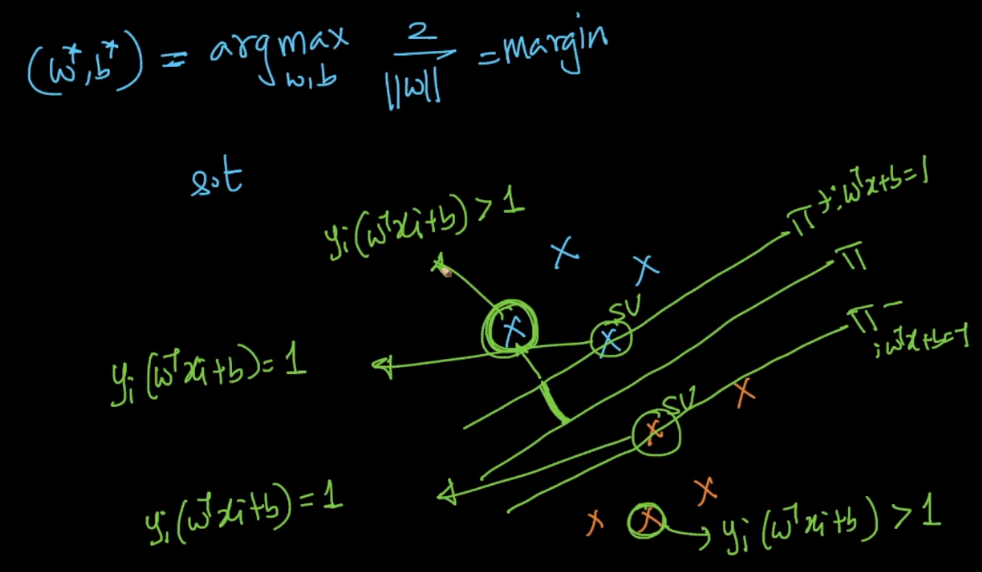 (w*, b*) = argmax w,b 2/||w|| = margin
s.t
yi(wᵀxi+b) > 1
π+ : wᵀx+b=1
π
SV
π- : wᵀx+b=-1
yi(wᵀxi+b) = 1
SV
yi(wᵀxi+b) = 1
yi(wᵀxi+b) > 1